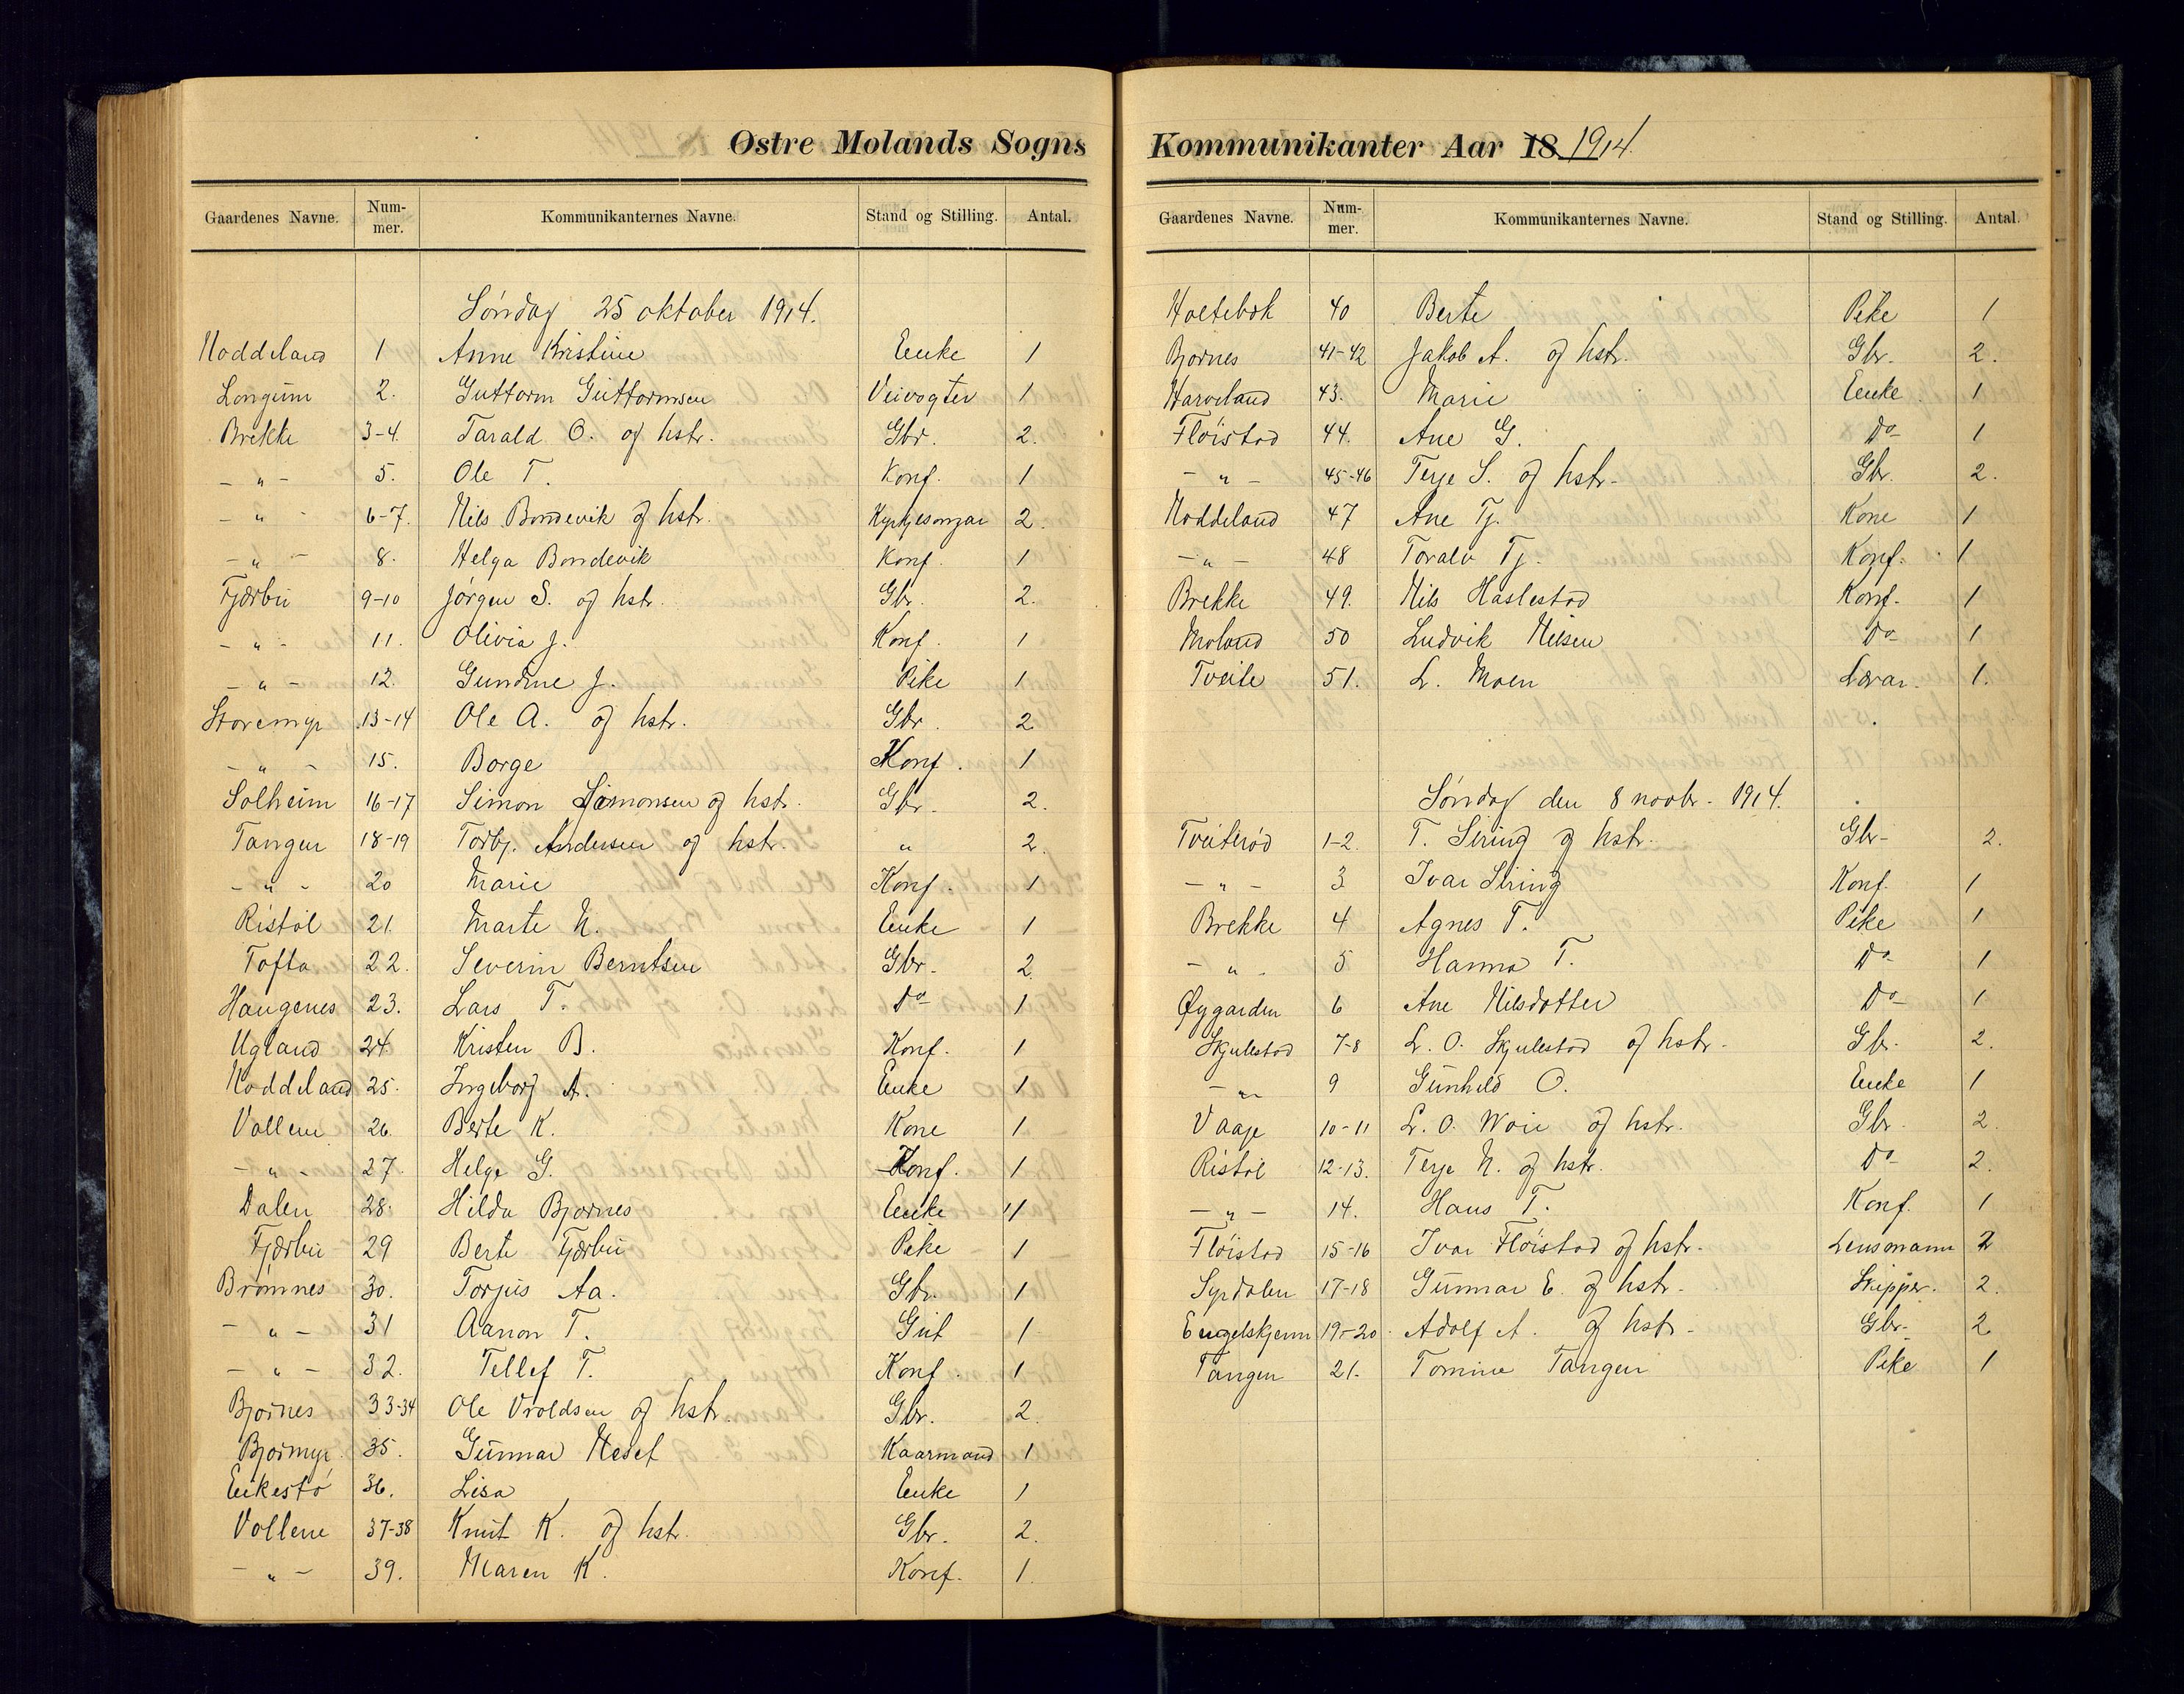 Østre Molands Sogns
Gaardenes Navne. Num-mer. Kommunikanternes Navne. Stand og Stilling. Antal.
Søndag 25 oktober 1914.
Noddeland 1 Anne Kristine Enke 1
Longum 2. Guttorm Guttormsen Veivogter 1
Brekke 3-4. Tarald O. og hstr. Gbr. 2.
- " - 5. Ole T. Konf. 1
- " - 6-7. Nils Bondevik og hstr. Kyrkjesongar 2.
- " - 8. Helga Bondevik Konf. 1
Fjærbu 9-10 Jørgen S. og hstr. Gbr. 2.
- " - 11. Olivia J. Konf. 1
- " - 12. Gundine J. Pike 1
Storemyr 13-14 Ole A. og hstr. Gbr. 2
- " - 15. Borge Konf. 1
Solheim 16-17 Simon Simonsen og hstr. Gbr. 2.
Tangen 18-19 Torbj. Andersen og hstr. " 2.
- " - 20 Marie Konf. 1
Ristøl 21. Marte N. Enke 1
Tofta 22. Severin Berntsen Gbr. 2.
Haugenes 23. Lars T. Do 1
Ugland 24. Kristen B. Konf. 1
Noddeland 25. Ingeborg A. Enke 1
Vollene 26. Berte K. Kone 1
- " - 27. Helge G. Konf. 1
Dalen 28. Hilda Bjornes Enke 1
Fjærbu 29 Berte Fjærbu Pike 1
Brømnes 30. Torjus Aa. Gbr. 1
- " - 31 Aanon T. Gut 1
- " - 32. Tellef T. Konf. 1
Bjornes 33-34 Ole Vroldsen og hstr. Gbr. 2.
Bjormyr 35. Gunnar Neset Kaarmand 1
Eikestø 36. Lisa Enke 1
Vollene 37-38 Knut K. og hstr. Gbr. 2.
- " - 39. Maren K. Konf. 1.
Kommunikanter Aar 18 1914.
Gaardenes Navne. Num-mer. Kommunikanternes Navne. Stand og Stilling. Antal.
Holtebæk 40 Berte Pike 1
Bjornes 41-42 Jakob A. og hstr. Gbr. 2.
Harveland 43. Marie Enke 1
Fløistad 44. Ane G. Do 1
- " - 45-46 Terje S. og hstr. Gbr. 2.
Noddeland 47 Ane Tj. Kone 1
- " - 48 Toralv Tj. Konf. 1
Brekke 49. Nils Haslestad Konf. 1
Moland 50 Ludvik Nilsen Do 1
Tveite 51. L. Moen Lærar. 1.
Søndag den 8 novbr. 1914.
Tveiterød 1-2. T. Siring og hstr. Gbr. 2.
- " - 3 Ivar Siring Konf. 1
Brekke 4 Agnes T. Pike 1
- " - 5 Hanna T. Do 1
Øygarden 6 Ane Nilsdotter Do 1
Skjulestad 7-8 L. O. Skjulestad og hstr. Gbr. 2.
- " - 9 Gunhild O. Enke 1
Vaaje 10-11 L. O. Woie og hstr. Gbr. 2.
Ristøl 12-13. Terje N. og hstr. Do 2.
- " - 14. Hans T. Konf. 1
Fløistad 15-16 Ivar Fløistad og hstr. Lensmann 2
Syrdalen 17-18 Gunnar E. og hstr. Skipper. 2.
Engelskjenn 19-20 Adolf A. og hstr. Gbr. 2
Tangen 21. Tomine Tangen Pike 1